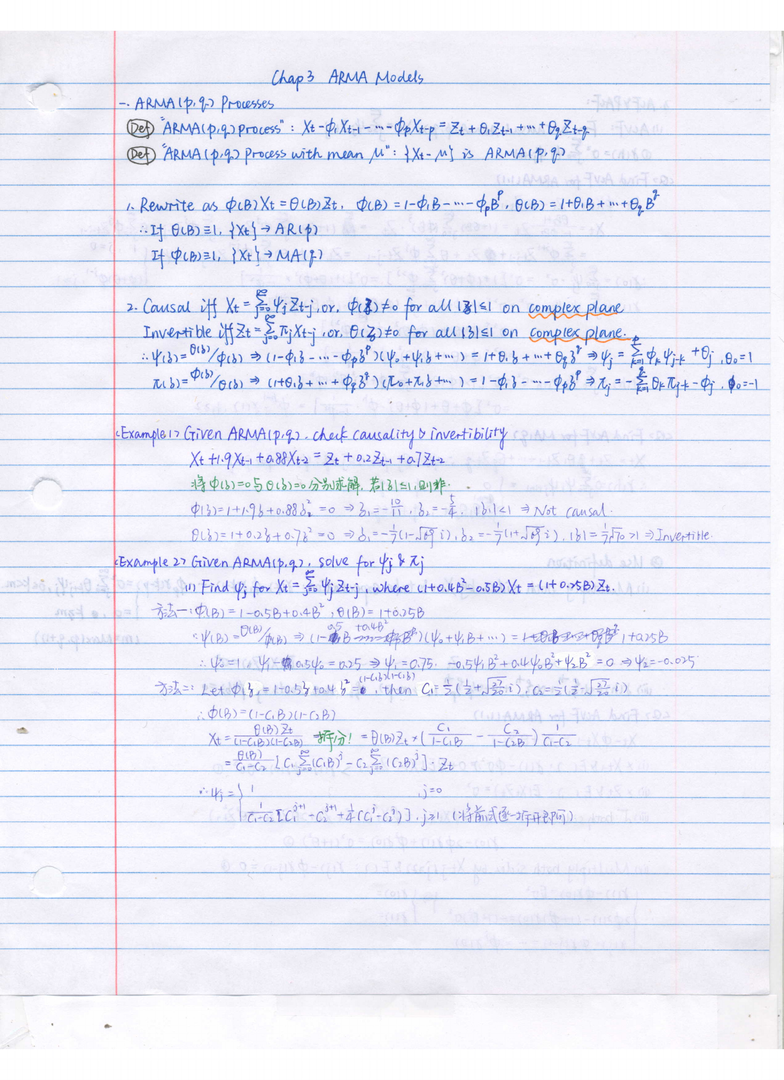 Chap3 ARMA Models
一. ARMA(p,q) Processes
(Def) "ARMA(p,q) process": Xt-φ1Xt-1-…-φpXt-p = Zt+θ1Zt-1+…+θqZt-q
(Def) "ARMA(p,q) Process with mean μ": {Xt-μ} is ARMA(p,q)
1. Rewrite as φ(B)Xt=θ(B)Zt, φ(B)=1-φ1B-…-φpB^p, θ(B)=1+θ1B+…+θqB^q
∴If θ(B)≡1, {Xt}→AR(p)
If φ(B)≡1, {Xt}→MA(q)
2. Causal iff Xt=∑_{j=0}^∞ ψjZt-j, or, φ(z)≠0 for all |z|≤1 on complex plane
Invertible iff Zt=∑_{j=0}^∞ πjXt-j, or, θ(z)≠0 for all |z|≤1 on complex plane.
∴ψ(z)=θ(z)/φ(z) ⇒ (1-φ1z-…-φpz^p)(ψ0+ψ1z+…)=1+θ1z+…+θqz^q ⇒ ψj=∑_{k=1}^p φkψj-k+θj, θ0=1
π(z)=φ(z)/θ(z) ⇒ (1+θ1z+…+φqz^q)(π0+π1z+…)=1-φ1z-…-φpz^p ⇒ πj=-∑_{k=1}^q θkπj-k-φj, φ0=-1
<Example 1> Given ARMA(p,q), check causality & invertibility
Xt+1.9Xt-1+0.88Xt-2=Zt+0.2Zt-1+0.7Zt-2
将φ(z)=0与θ(z)=0分别求解, 若|z|≤1,则非.
φ(z)=1+1.9z+0.88z²=0 ⇒ z1=-10/11, z2=-5/4, |z1|<1 ⇒ Not causal.
θ(z)=1+0.2z+0.7z²=0 ⇒ z1=-1/7(1-√69 i), z2=-1/7(1+√69 i), |z|=1/7√70>1 ⇒ Invertible
<Example 2> Given ARMA(p,q), solve for ψj & πj
(1) Find ψj for Xt=∑_{j=0}^∞ ψjZt-j, where (1+0.4B²-0.5B)Xt=(1+0.25B)Zt.
方法一: φ(B)=1-0.5B+0.4B², θ(B)=1+0.25B
∵ψ(B)=θ(B)/φ(B) ⇒ (1-0.5B+0.4B²)(ψ0+ψ1B+…)=1+0.25B
∴ψ0=1, ψ1-0.5ψ0=0.25 ⇒ ψ1=0.75. -0.5ψ1B²+0.4ψ0B²+ψ2B²=0 ⇒ ψ2=-0.025
方法二: Let φ(z)=1-0.5z+0.4z²=(1-C1z)(1-C2z)=0, then C1=1/2(1/2+√(27/20) i), C2=1/2(1/2-√(27/20) i)
∴φ(B)=(1-C1B)(1-C2B)
Xt=θ(B)Zt/((1-C1B)(1-C2B)) 拆分! =θ(B)Zt×(C1/(1-C1B) - C2/(1-C2B)) 1/(C1-C2)
=θ(B)/(C1-C2) [C1∑_{j=0}^∞(C1B)^j-C2∑_{j=0}^∞(C2B)^j]·Zt
∴ψj={1 , j=0
1/(C1-C2)[C1^{j+1}-C2^{j+1}+1/4(C1^j-C2^j)], j≥1 (将前式逐一打开即可)